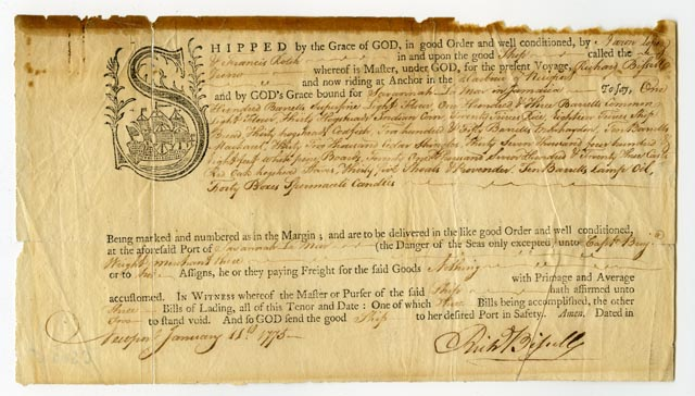 SHIPPED by the Grace of GOD, in good Order and well conditioned, by Aaron Lopez
& Francis Rotch in and upon the good Ship called the
whereof is Master, under GOD, for the present Voyage, Richard Bissell
and now riding at Anchor in the Harbour of Newport
and by GOD's Grace bound for Savannah La Mar in Jamaica To say, One
Hundred Barrells Superfine Light Flour One Hundred & Three Barrells Common
Light Flour, Thirty Hogsheads Indian Corn Twenty Tierces Rice, Eighteen Tierces Ship
Bread Thirty hogsheads Codfish Two hundred & Fifty Barrells Menhayden, Ten Barrells
Mackarel, Thirty Two thousand Cedar Shingles Thirty Seven thousand four hundred
Eight feet White pine Boards, Twenty Thousand Seven Hundred & Twenty three
Red Oak hogshead Staves, Thirty five Sheep & Provender Ten Barrells Lamp Oil,
Forty Boxes Spermaceti Candles
Being marked and numbered as in the Margin; and are to be delivered in the like good Order and well conditioned,
at the aforesaid Port of Savannah La Mar (the Danger of the Seas only excepted) unto Capt. Benj.
Wright merchant there
or to his Assigns, he or they paying Freight for the said Goods Nothing with Primage and Average
accustomed. IN WITNESS whereof the Master or Purser of the said Ship hath affirmed unto
three Bills of Lading, all of this Tenor and Date: One of which three Bills being accomplished, the other
two to stand void. And so GOD send the good Ship to her desired Port in Safety. Amen. Dated in
Newport January 1775 Richd Bissell